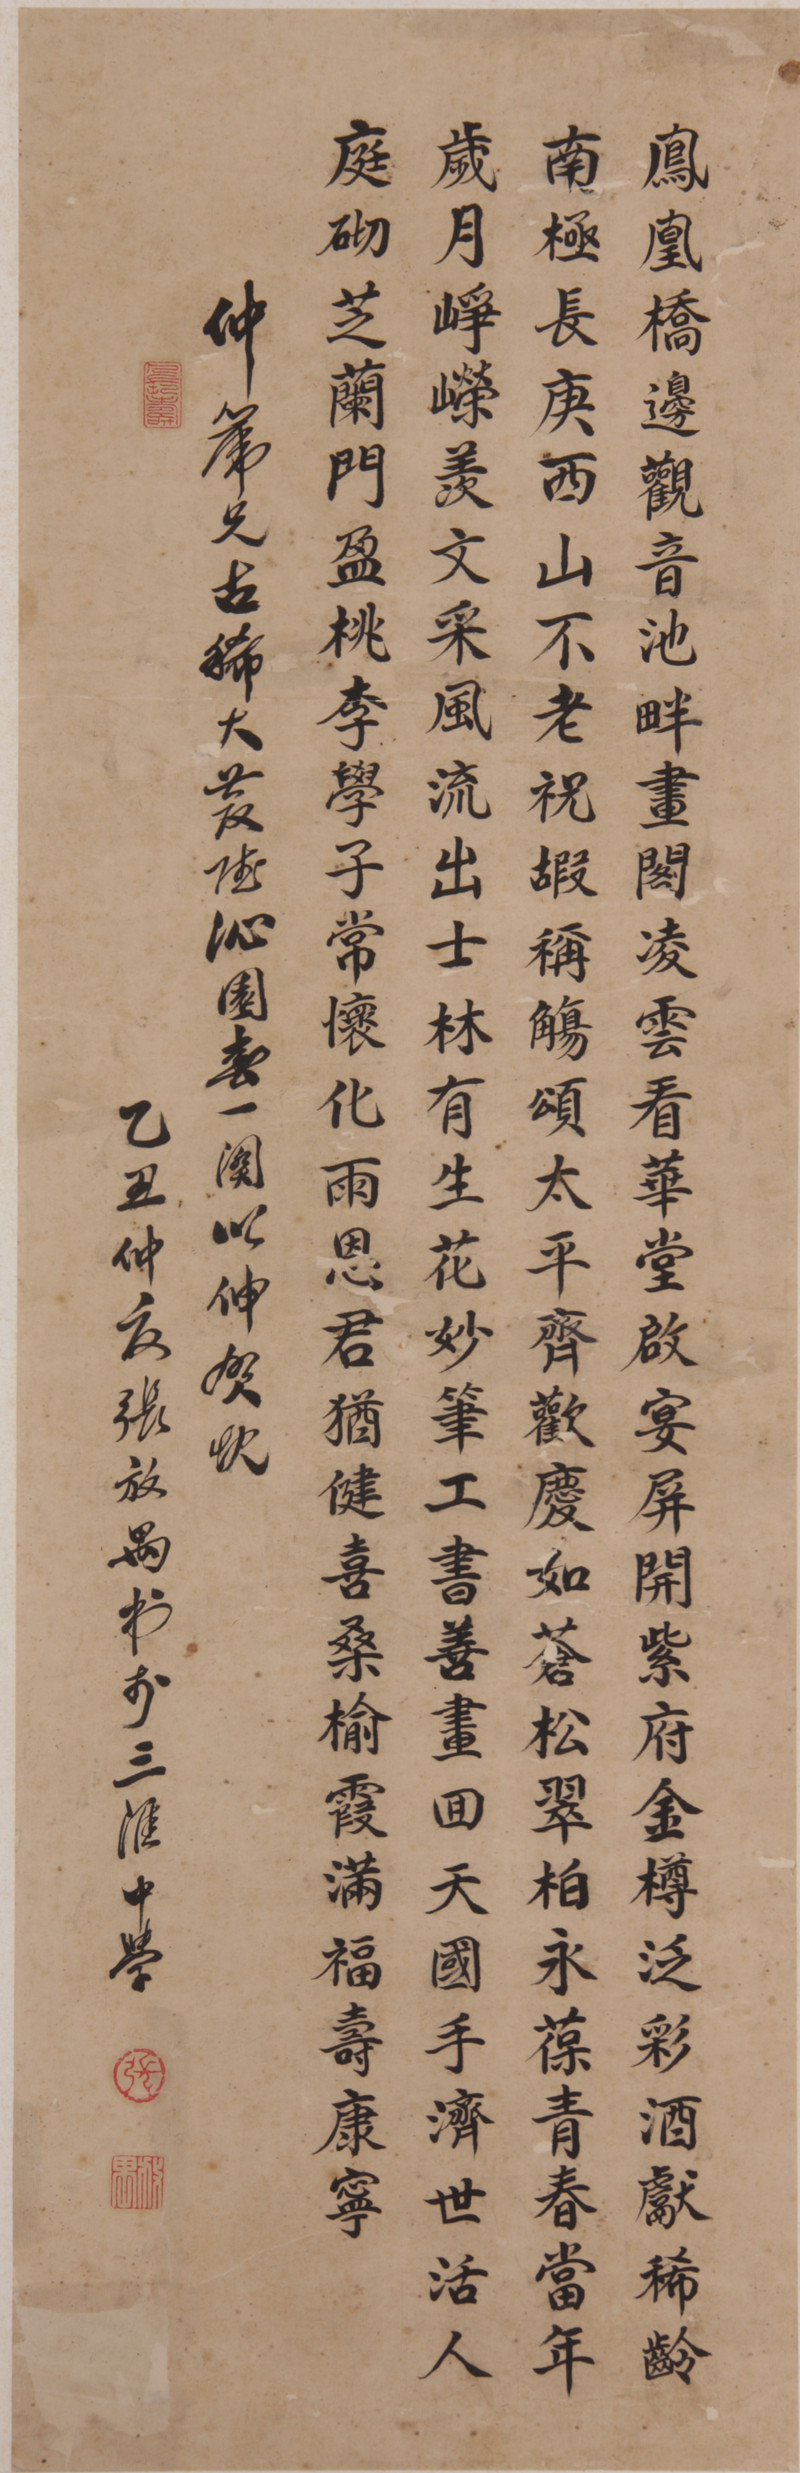 鳳凰橋邊觀音池畔畫閣凌雲看華堂啟宴屏開紫府金樽泛彩酒獻稀齡
南極長庚西山不老祝嘏稱觴頌太平齊歡慶如蒼松翠柏永葆青春當年
歲月崢嶸羨文采風流出士林有生花妙筆工書善畫回天國手濟世活人
庭砌芝蘭門盈桃李學子常懷化雨恩君猶健喜桑榆霞滿福壽康寧
仲篪兄古稀大慶填沁園春一闋以伸賀忱
乙丑仲夏張放禺書於三淮中學